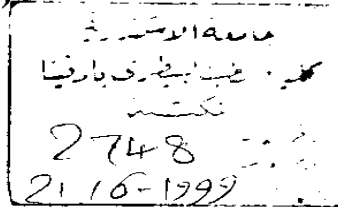 جامعة الاسكندرية
كلية . طب بيطري بادفينا
مكتبة
2748
21/6-1999